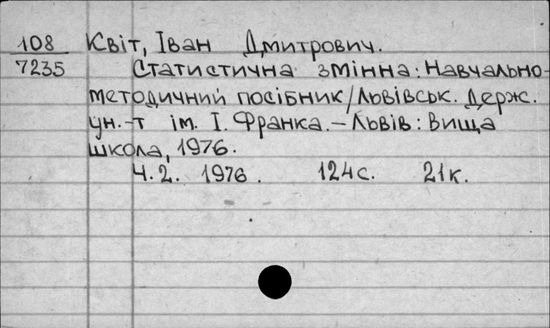 108 Квіт, Іван Дмитрович.
7235 Статистична змінна: Навчально-
методичний посібник/Львівськ. держ.
ун.-т ім. І. Франка.-Львів: Вища
школа, 1976.
Ч.2. 1976. 124с. 21к.